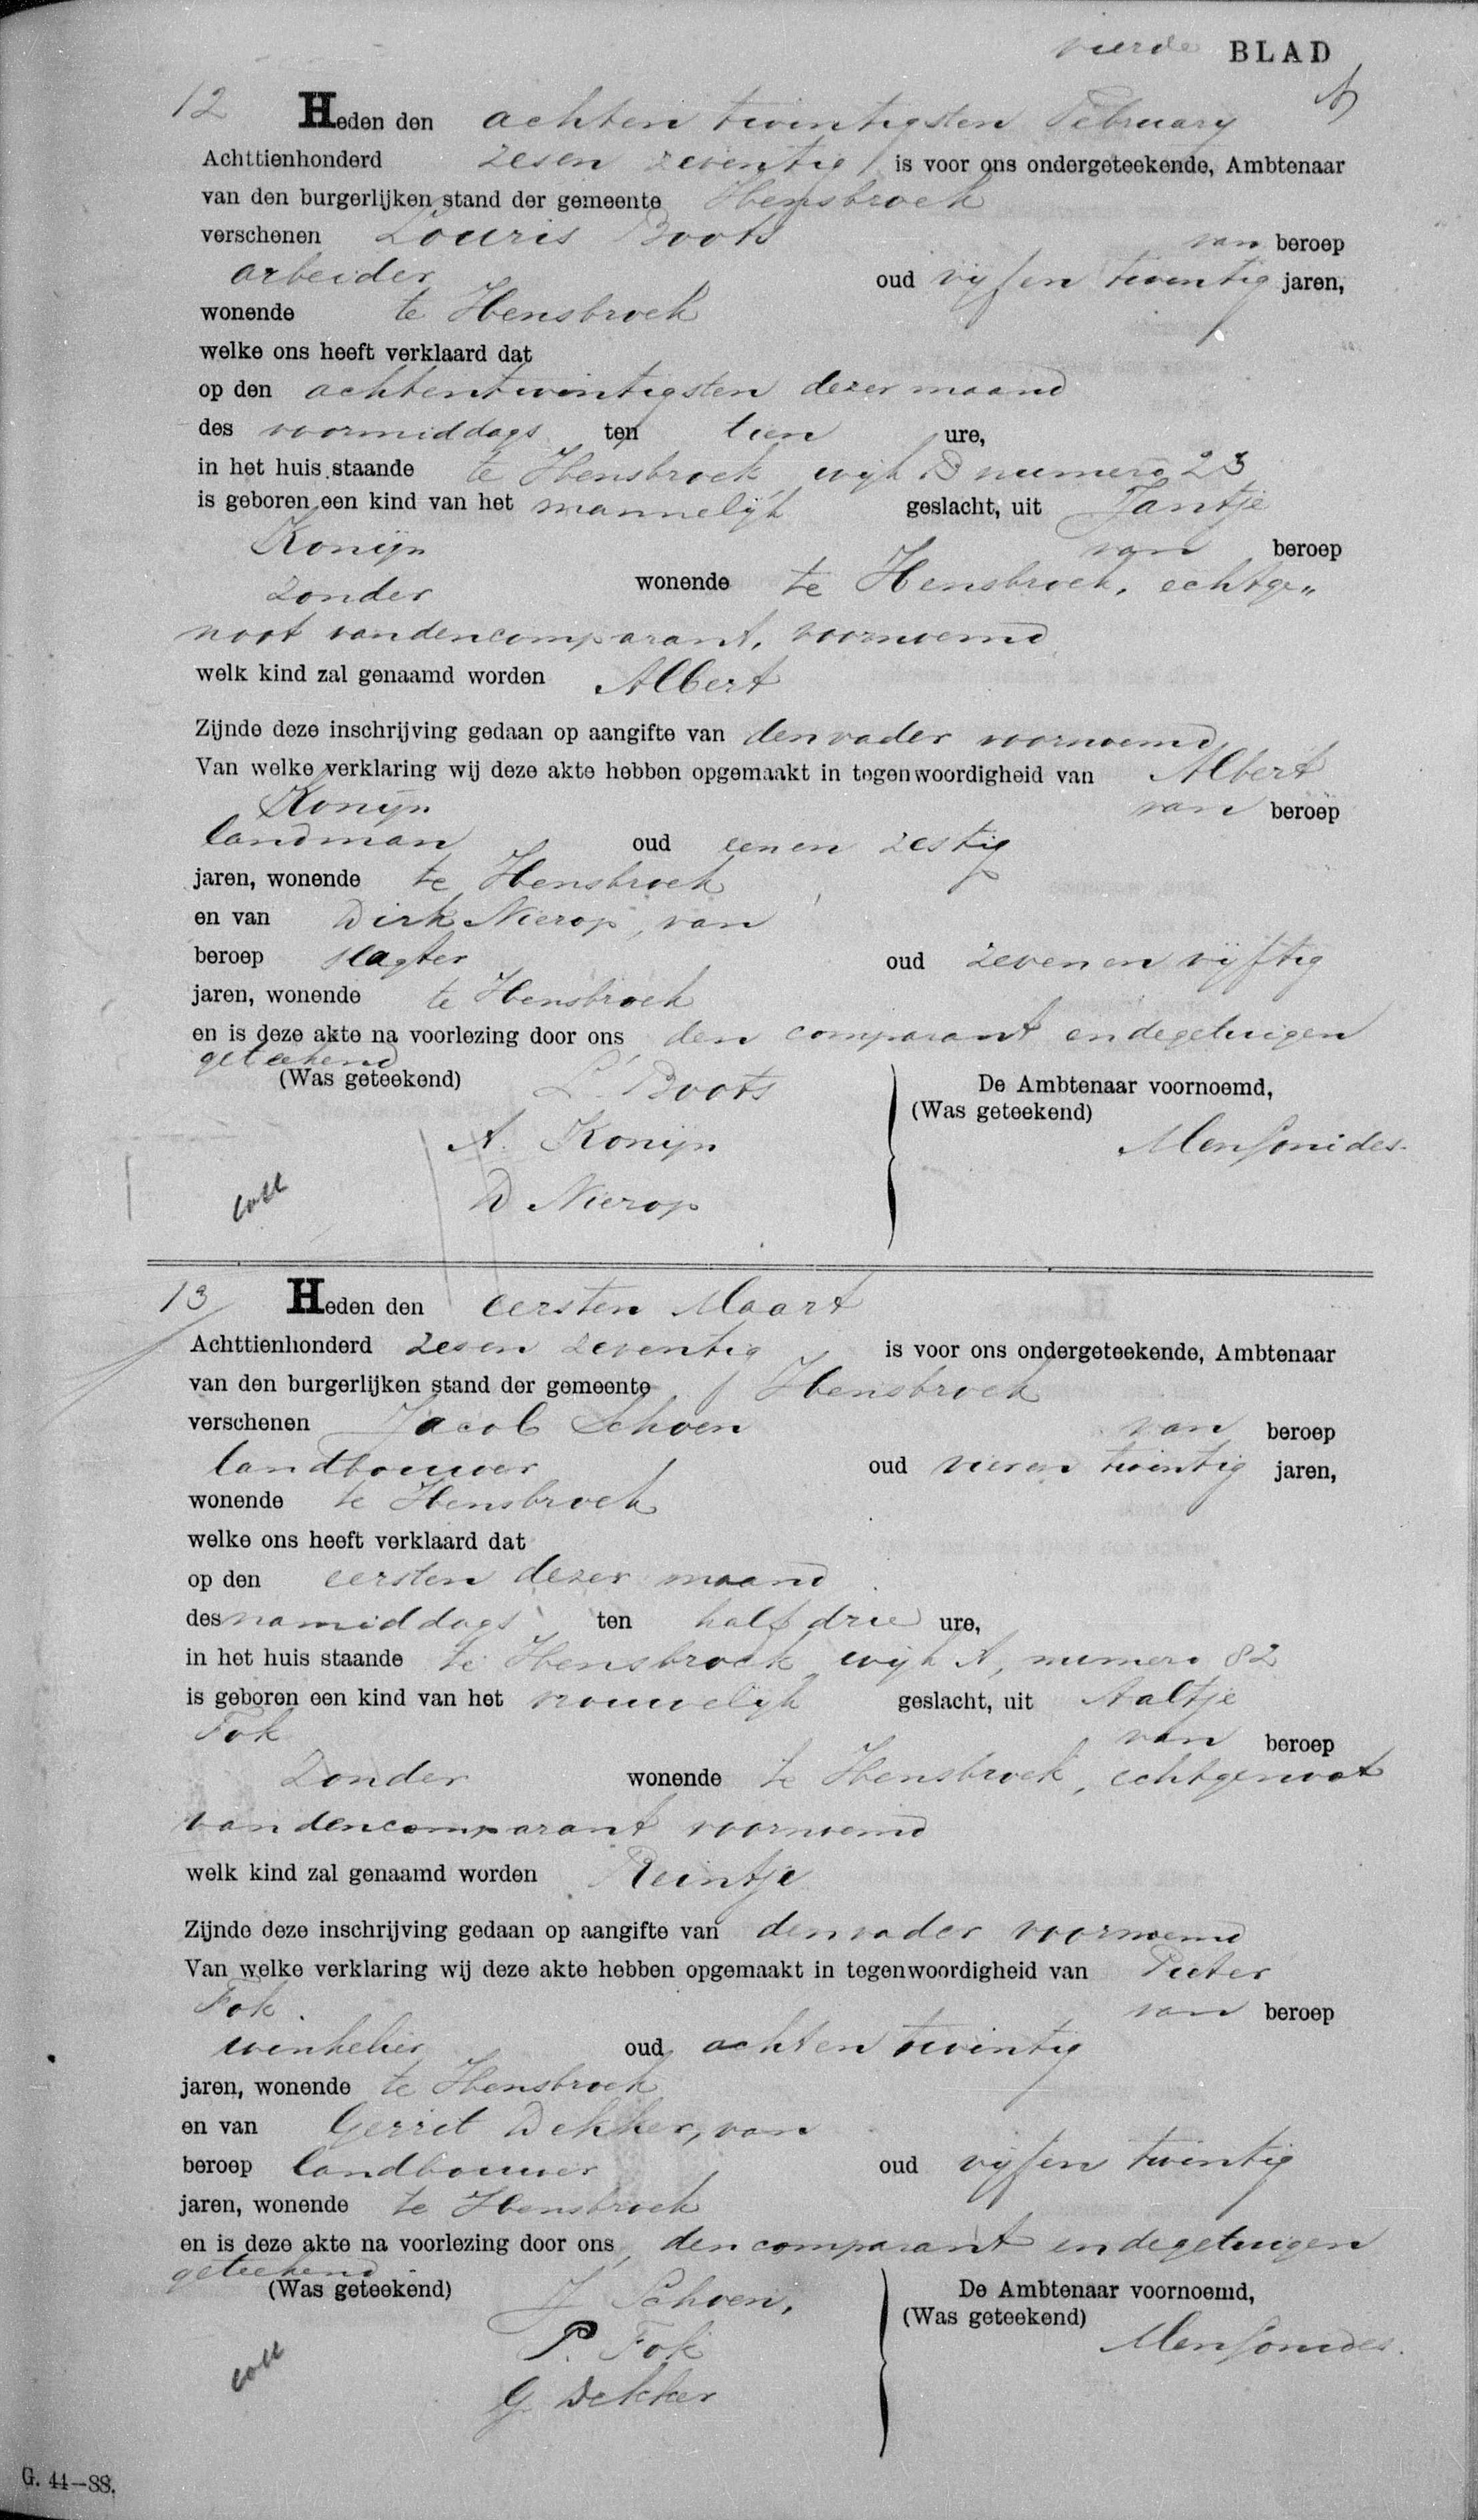 vierde BLAD
12 Heden den achten twintigsten February
Achttienhonderd zesen zeventig is voor ons ondergeteekende, Ambtenaar
van den burgerlijken stand der gemeente Hensbroek
verschenen Louris Boots van beroep
arbeider oud vijfen twintig jaren,
wonende te Hensbroek
welke ons heeft verklaard dat
op den achtentwintigsten dezer maand
des voormiddags ten tien ure,
in het huis staande te Hensbroek wijk B numero 23
is geboren een kind van het mannelijk geslacht, uit Jantje
Konijn van beroep
zonder wonende te Hensbroek, echtge„
noot van den comparant, voornoemd
welk kind zal genaamd worden Albert
Zijnde deze inschrijving gedaan op aangifte van den vader voornoemd
Van welke verklaring wij deze akte hebben opgemaakt in tegenwoordigheid van Albert
Konijn van beroep
landman oud eenen zestig
jaren, wonende te Hensbroek
en van Dirk Nierop, van
beroep slagter oud zevenen vijftig
jaren, wonende te Hensbroek
en is deze akte na voorlezing door ons den comparant en de getuigen
geteekend
(Was geteekend) L. Boots De Ambtenaar voornoemd,
(Was geteekend)
A. Konijn Mensonides.
coll D Nierop
13 Heden den eersten Maart
Achttienhonderd zesen zeventig is voor ons ondergeteekende, Ambtenaar
van den burgerlijken stand der gemeente Hensbroek
verschenen Jacob Schoen van beroep
landbouwer oud vieren twintig jaren,
wonende te Hensbroek
welke ons heeft verklaard dat
op den eersten dezer maand
des namiddags ten half drie ure,
in het huis staande te Hensbroek wijk A, numero 82
is geboren een kind van het vrouwelijk geslacht, uit Aaltje
Fok van beroep
zonder wonende te Hensbroek, echtgenoot
van den comparant voornoemd
welk kind zal genaamd worden Reintje
Zijnde deze inschrijving gedaan op aangifte van den vader voornoemd
Van welke verklaring wij deze akte hebben opgemaakt in tegenwoordigheid van Pieter
Fok van beroep
winkelier oud achten twintig
jaren, wonende te Hensbroek
en van Gerrit Dekker, van
beroep landbouwer oud vijfen twintig
jaren, wonende te Hensbroek
en is deze akte na voorlezing door ons, den comparant en de getuigen
geteekend
(Was geteekend) J Schoen, De Ambtenaar voornoemd,
(Was geteekend)
P. Fok Mensonides.
coll G. Dekker
G. 44—88.